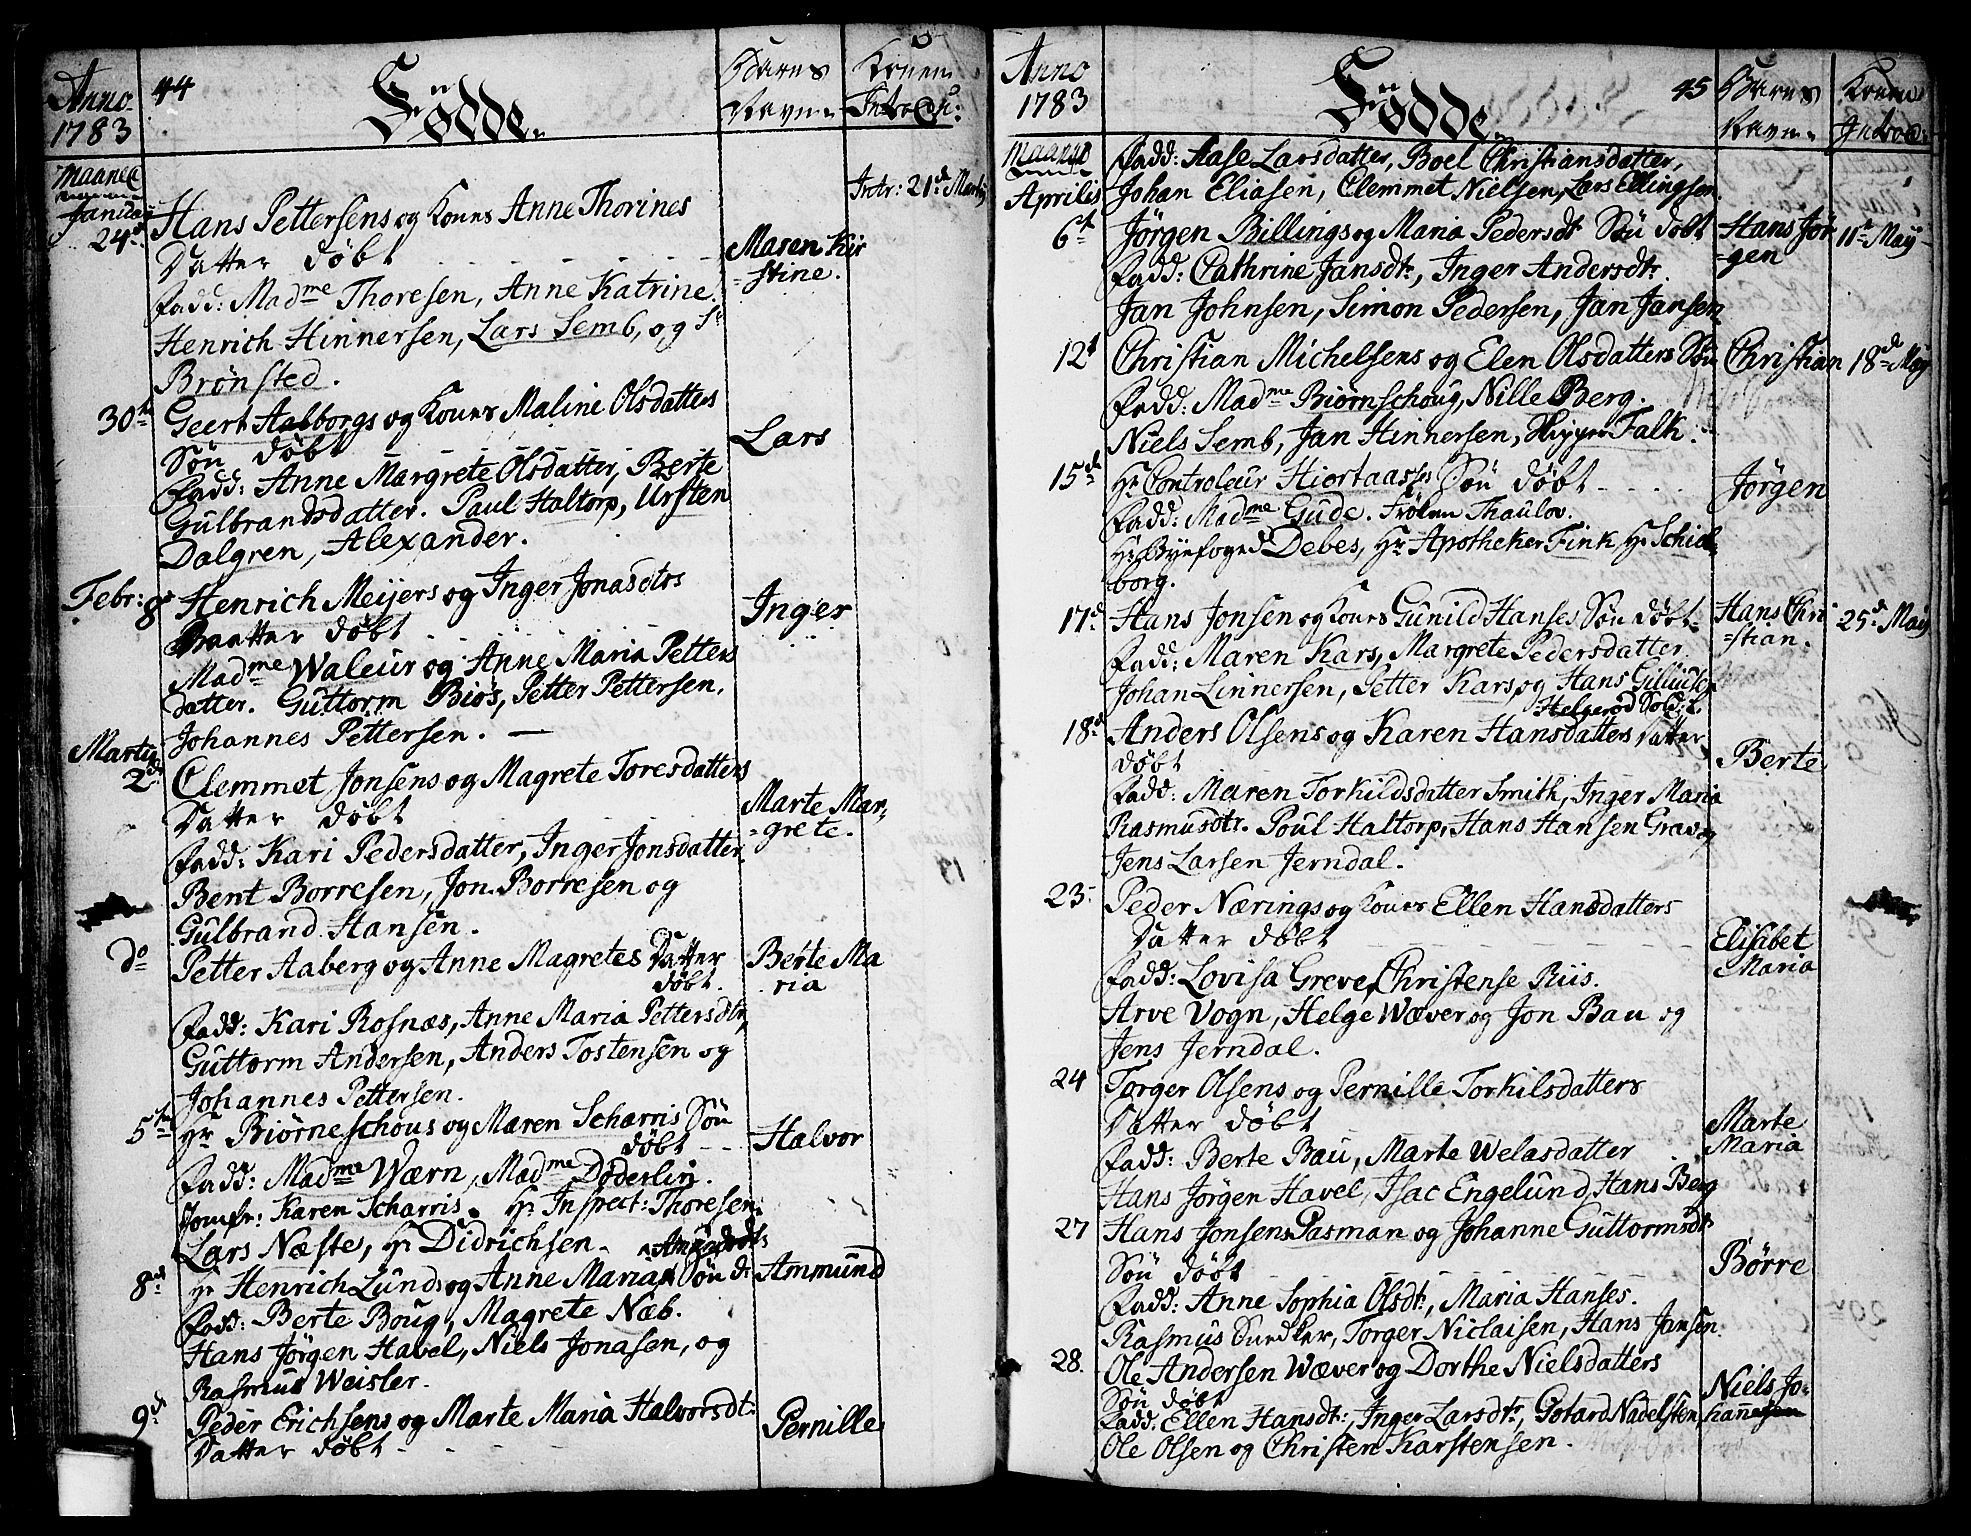 Anno 1783
44
Födde.
Barns Navn.
Konens Introdu:
Maaned
January
24de
Hans Pettersens og Kones Anne Thorines
Datter döbt
Maren Kir
=stine.
Intr: 21de Martij
Fadd: Madme Thoresen, Anne Katrine.
Henrich Hinnersen, Lars Semb, og Sr
Brönsted.
30te
Geert Aalborgs og Kones Maline Olsdatters
Sön döbt
Lars
Fadd: Anne Margrete Olsdatter, Berte
Gulbrandsdatter. Paul Haltorp, Ursten
Dalgren, Alexander.
Febr: 8
Henrich Meijers og Inger Jonasdtrs
Daatter döbt
Inger
Madme Waleur og Anne Maria Petters
datter. Guttorm Biös, Petter Pettersen,
Johannes Pettersen.
Martij
2de
Clemmet Jonsens og Magrete Toresdatters
Datter döbt
Marte Mar,
=grete.
Fadd: Kari Pedersdatter, Inger Jonsdatter
Bent Borresen, Jon Borresen og
Gulbrand Hansen.
do
Petter Aaberg og Anne Magretes Datter
döbt.
Berte Ma
ria
Fadd: Kari Rosnæs, Anne Maria Pettersdtr,
Guttorm Andersen, Anders Tostensen og
Johannes Pettersen.
5te
Hr Biörneschous og Maren Scharris Sön
döbt
Halvor
Fadd: Madme Wærn, Madme Döderlin.
Jomfr: Karen Scharris. Hr Inspect: Thoresen.
Lars Næste, Hr Didrichsen
8de
Hr Henrich Lunds og Anne Maria Amundsdts Sön d:
Ammund
Fadd: Berte Boug, Magrete Næb.
Hans Jörgen Havel, Niels Jonasen, og
Rasmus Weisler.
9de
Peder Erichsens og Marte Maria Halvorsdt:
Datter döbt
Pernille
Anno 1783
Födde
45
Barns Navn.
Konens Introd:
Maaned
Aprilis
Fadd: Aase Larsdatter, Boel Christiansdatter,
Johan Eliasen, Clemmet Nielsen, Lars Ellingsen.
6t
Jörgen Billings og Maria Pedersdt Sön döbt
Hans Jör
=gen
11te May
Fadd: Cathrine Jansdt:, Inger Andersdt:
Jan Johnsen, Simon Pedersen, Jan Jansen
12t
Christian Michelsens og Elen Olsdatters Sön
Christian
18de May
Fadd: Madme Biörnschoug, Nille Berg.
Niels Semb, Jan Hinnersen, Falk.
15de
Hr Controleur Hiortaass Sön döbt
Jörgen
Fadd: Madme Gude. Frölen Thaulov.
Hr Byefoged Debes, Hr Apotheker Fink Hr Schiel
borg.
17de
Hans Jonsen og Kones Gunild Hanses Sön döbt
Hans Chri
=stian.
25de May
Fadd: Maren Kars, Margrete Pedersdatter.
Johan Linnersen, Petter Kars, og Hans
Helgeröd Sold:
18de
Anders Olsens og Karen Hansdatters Datter
döbt
Berte
Fadd: Maren Torkildsdatter Smith, Inger Maria
Rasmusdtr. Poul Haltorp, Hans Hansen Grav, og
Jens Larsen Jerndal.
23
Peder Nærings og Kones Ellen Hansdatters
Datter döbt
Elisabet
Maria
Fadd: Lovisa Greve, Christense Riis.
Arve Vogn, Helge Wæver og Jon Bau og
Jens Jerndal.
24
Torger Olsens og Pernille Torkilsdatters
Datter döbt
Marte
Maria
Fadd: Berte Bau, Marte Welasdatter
Hans Jörgen Havel, Isac Engelund, Hans Berg
27
Hans Jonsens Pasman og Johanne Guttormsdt
Sön döbt
Börre
Fadd: Anne Sophia Olsdt:, Maria Hanses.
Rasmus Snedker, Torger Niclaisen, Hans Jansen
28.
Ole Andersen Wæver og Dorthe Nielsdatters
Sön döbt
Niels Jo-
hannesen
Fadd: Ellen Hansdt:, Inger Larsdtr, Gotard Nadelsten,
Ole Olsen og Christen Karstensen.